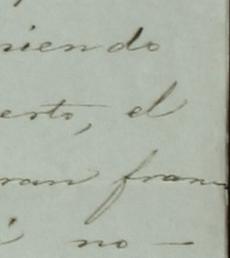 niendo
erto, el
ran fran
i no —